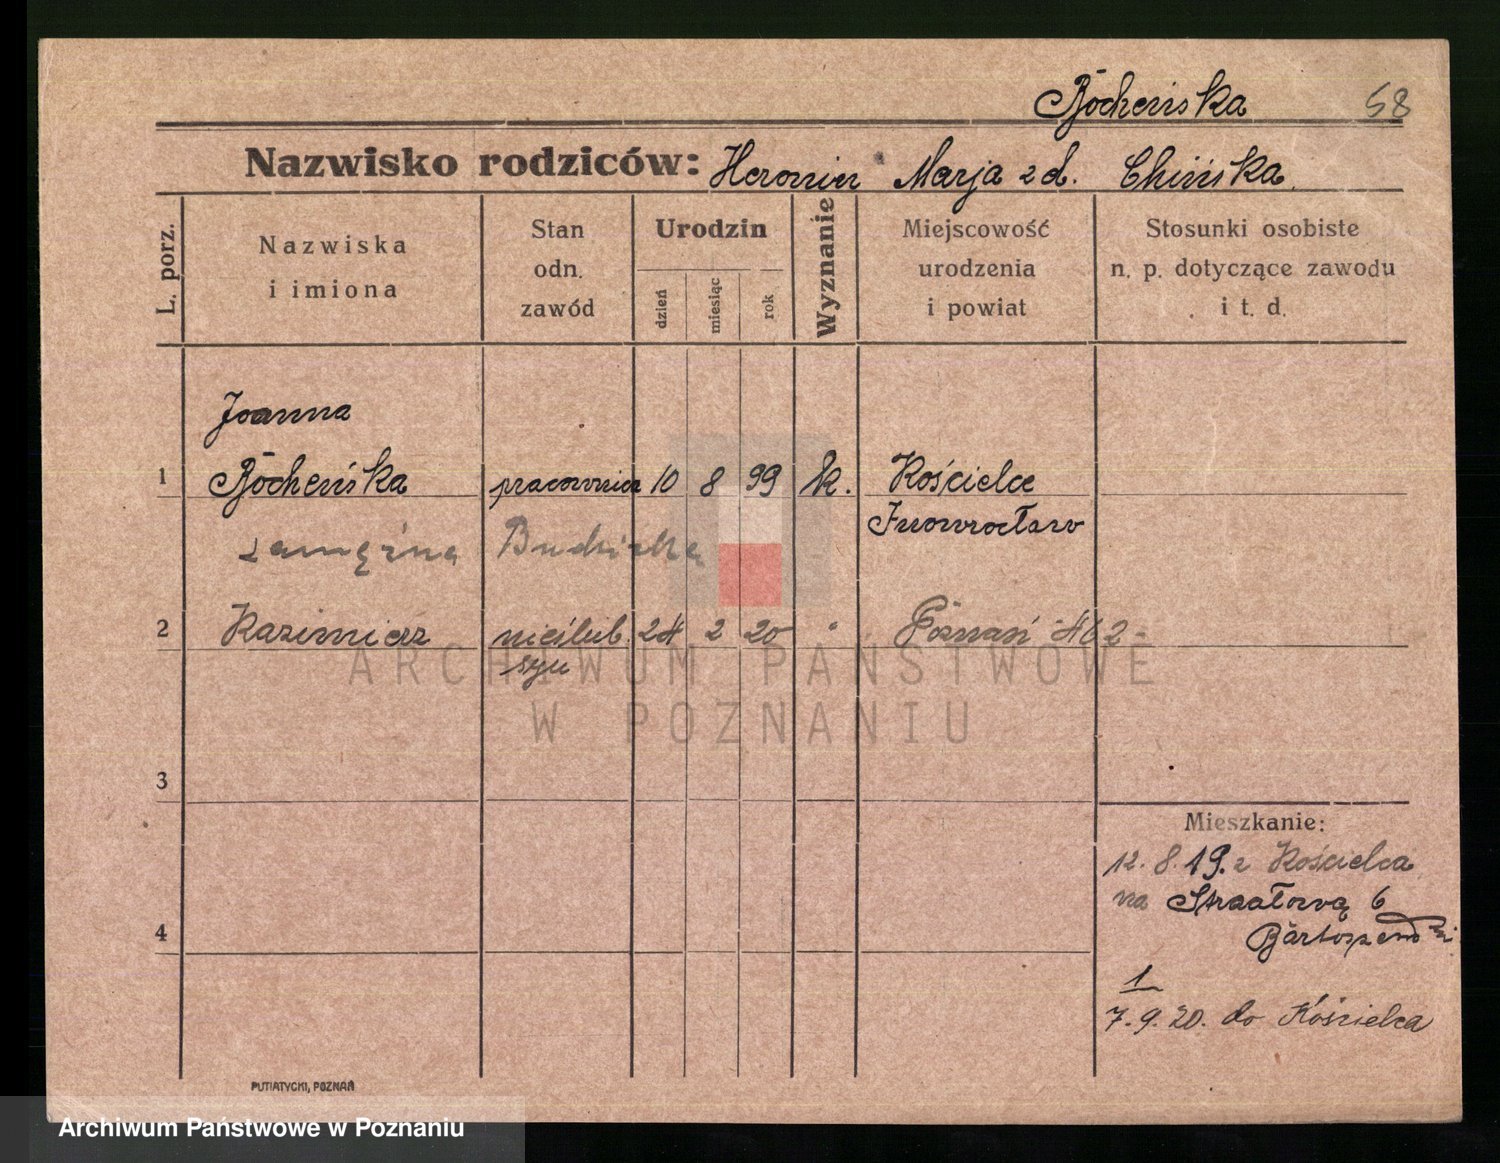 Bocheńska 58
Nazwisko rodziców: Marja zd. Chińska
L. porz.
Nazwiska
i imiona
Stan
odn.
zawód
Urodzin
dzień
miesiąc
rok
Wyznanie
Miejscowość
urodzenia
i powiat
Stosunki osobiste
n. p. dotyczące zawodu
i t. d.
Joanna
1 Bocheńska pracownica 10 8 99 k. Kościelce
Inowrocław
zamężna
2 Kazimierz nieślub. 24 2 20 " Poznań 462
syn
ARCHIWUM PAŃSTWOWE
W POZNANIU
3
Mieszkanie:
12. 8. 19. z Kościelca
na 6
4
1
7. 9. 20. do Kościelca
PUTIATYCKI, POZNAŃ
Archiwum Państwowe w Poznaniu